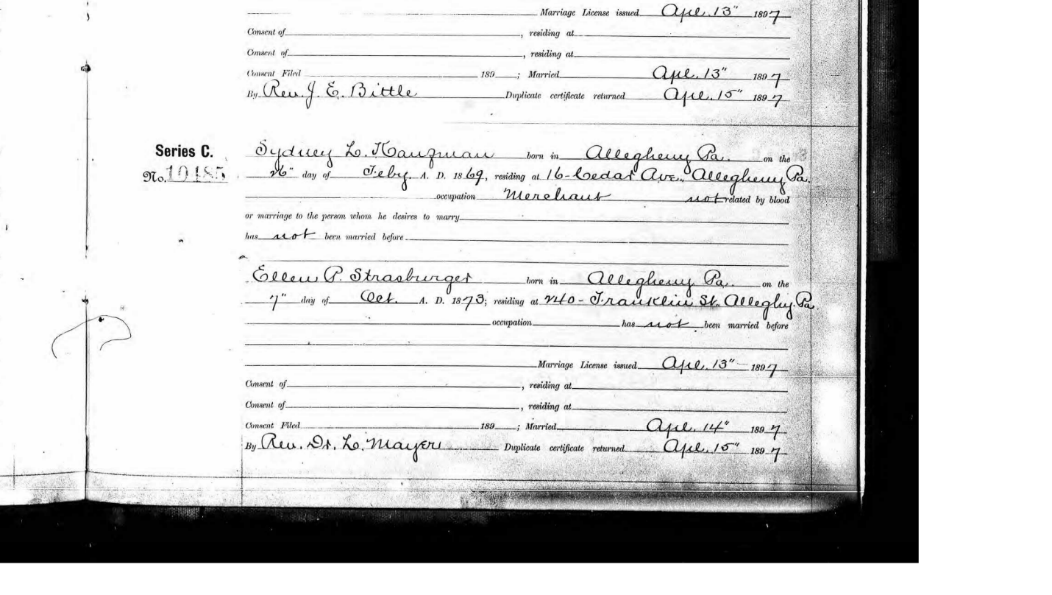 Marriage License issued Apl. 13" 1897
Consent of , residing at
Consent of , residing at
Consent Filed 189 ; Married Apl. 13" 1897
By Rev. J. E. Bittle Duplicate certificate returned Apl. 15" 1897
Series C. Sydney L. Kaufman born in Allegheny Pa. on the
No. 10485 26" day of Feby. A. D. 1869, residing at 16-Cedar Ave. Allegheny Pa.
occupation Merchant not related by blood
or marriage to the person whom he desires to marry
has not been married before
Ellen P. Strasburger born in Allegheny Pa. on the
7" day of Oct. A. D. 1873; residing at 240-Franklin St. Alleghy. Pa
occupation has not been married before
Marriage License issued Apl. 13" 1897
Consent of , residing at
Consent of , residing at
Consent Filed 189 ; Married Apl. 14" 1897
By Rev. Dr. L. Mayer Duplicate certificate returned Apl. 15" 1897